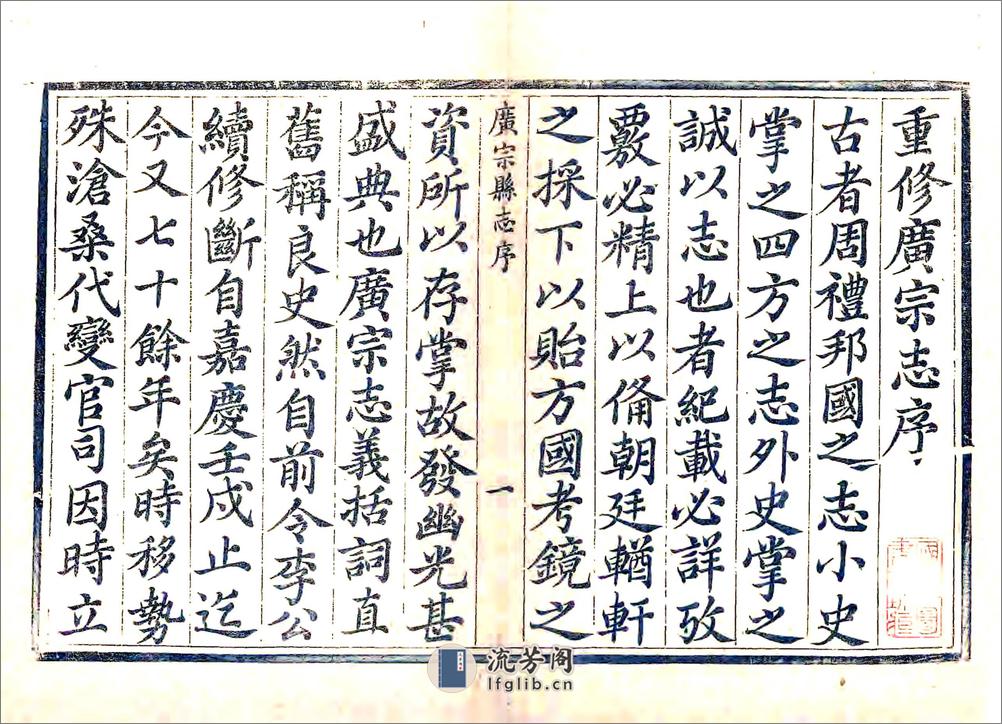 重修廣宗志序
古者周禮邦國之志小史
掌之四方之志外史掌之
誠以志也者紀載必詳攷
覈必精上以俻朝廷輶軒
之採下以貽方國考鏡之
廣宗縣志序
一
資所以存掌故發幽光甚
盛典也廣宗志義括詞直
舊稱良史然自前令李公
續修斷自嘉慶壬戍止迄
今又七十餘年矣時移勢
殊滄桑代變官司因時立
流芳阁
lfglib.cn